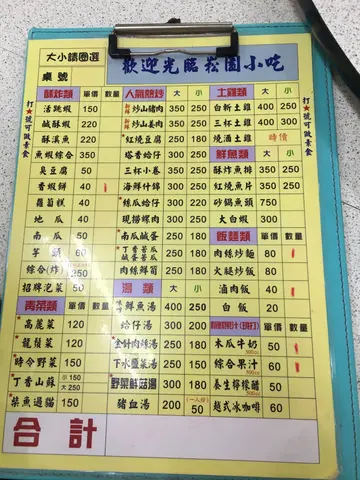 大小請圈選
桌號
歡迎光臨 崧園小吃
打★號可做素食
酥炸類 單價 數量
活跳蝦 150
鹹酥蝦 220
酥溪蝦 220
魚蝦綜合 350
臭豆腐 50
香蝦餅 40
蘿蔔糕 40
地瓜 40
南瓜 50
芋頭 60
綜合(炸) 250
招牌泡菜 50
青菜類 單價 數量
★高麗菜 120
★龍鬚菜 120
★時令野菜 150
★丁香山蘇 小150 大250
★柴魚過貓 150
人氣熱炒 大 小
炒山豬肉 350 250
炒山羌肉 350 250
★紅燒豆腐 250 180
★塔香蛤仔 300 200
三杯小卷 350 250
海鮮什錦 300 200
★絲瓜蛤仔 300 200
現撈螺肉 300 200
★南瓜鹹蛋 250 180
★丁香苦瓜 鹹蛋苦瓜 250 180
肉絲鮮菇 250 180
湯類 大 小
鮮魚湯 400 250
蛤仔湯 300 200
★金針肉絲湯 250 180
下水薑菜湯 250 150
★野菜鮮菇湯 300 180
豬血湯 200 (一人份) 50
土雞類 大 小
白斬土雞 400 250
三杯土雞 400 300
燒酒土雞 時價
鮮魚類 大 小
酥炸魚排 350 250
紅燒魚片 350 250
砂鍋魚頭 750
大白蝦 300
飯麵類 單價 數量
肉絲炒麵 80
火腿炒飯 80
滷肉飯 40
白飯 20
木瓜牛奶 500cc 50
綜合果汁 500cc 60
養生檸檬醋 500cc 50
越式冰咖啡 60
合計